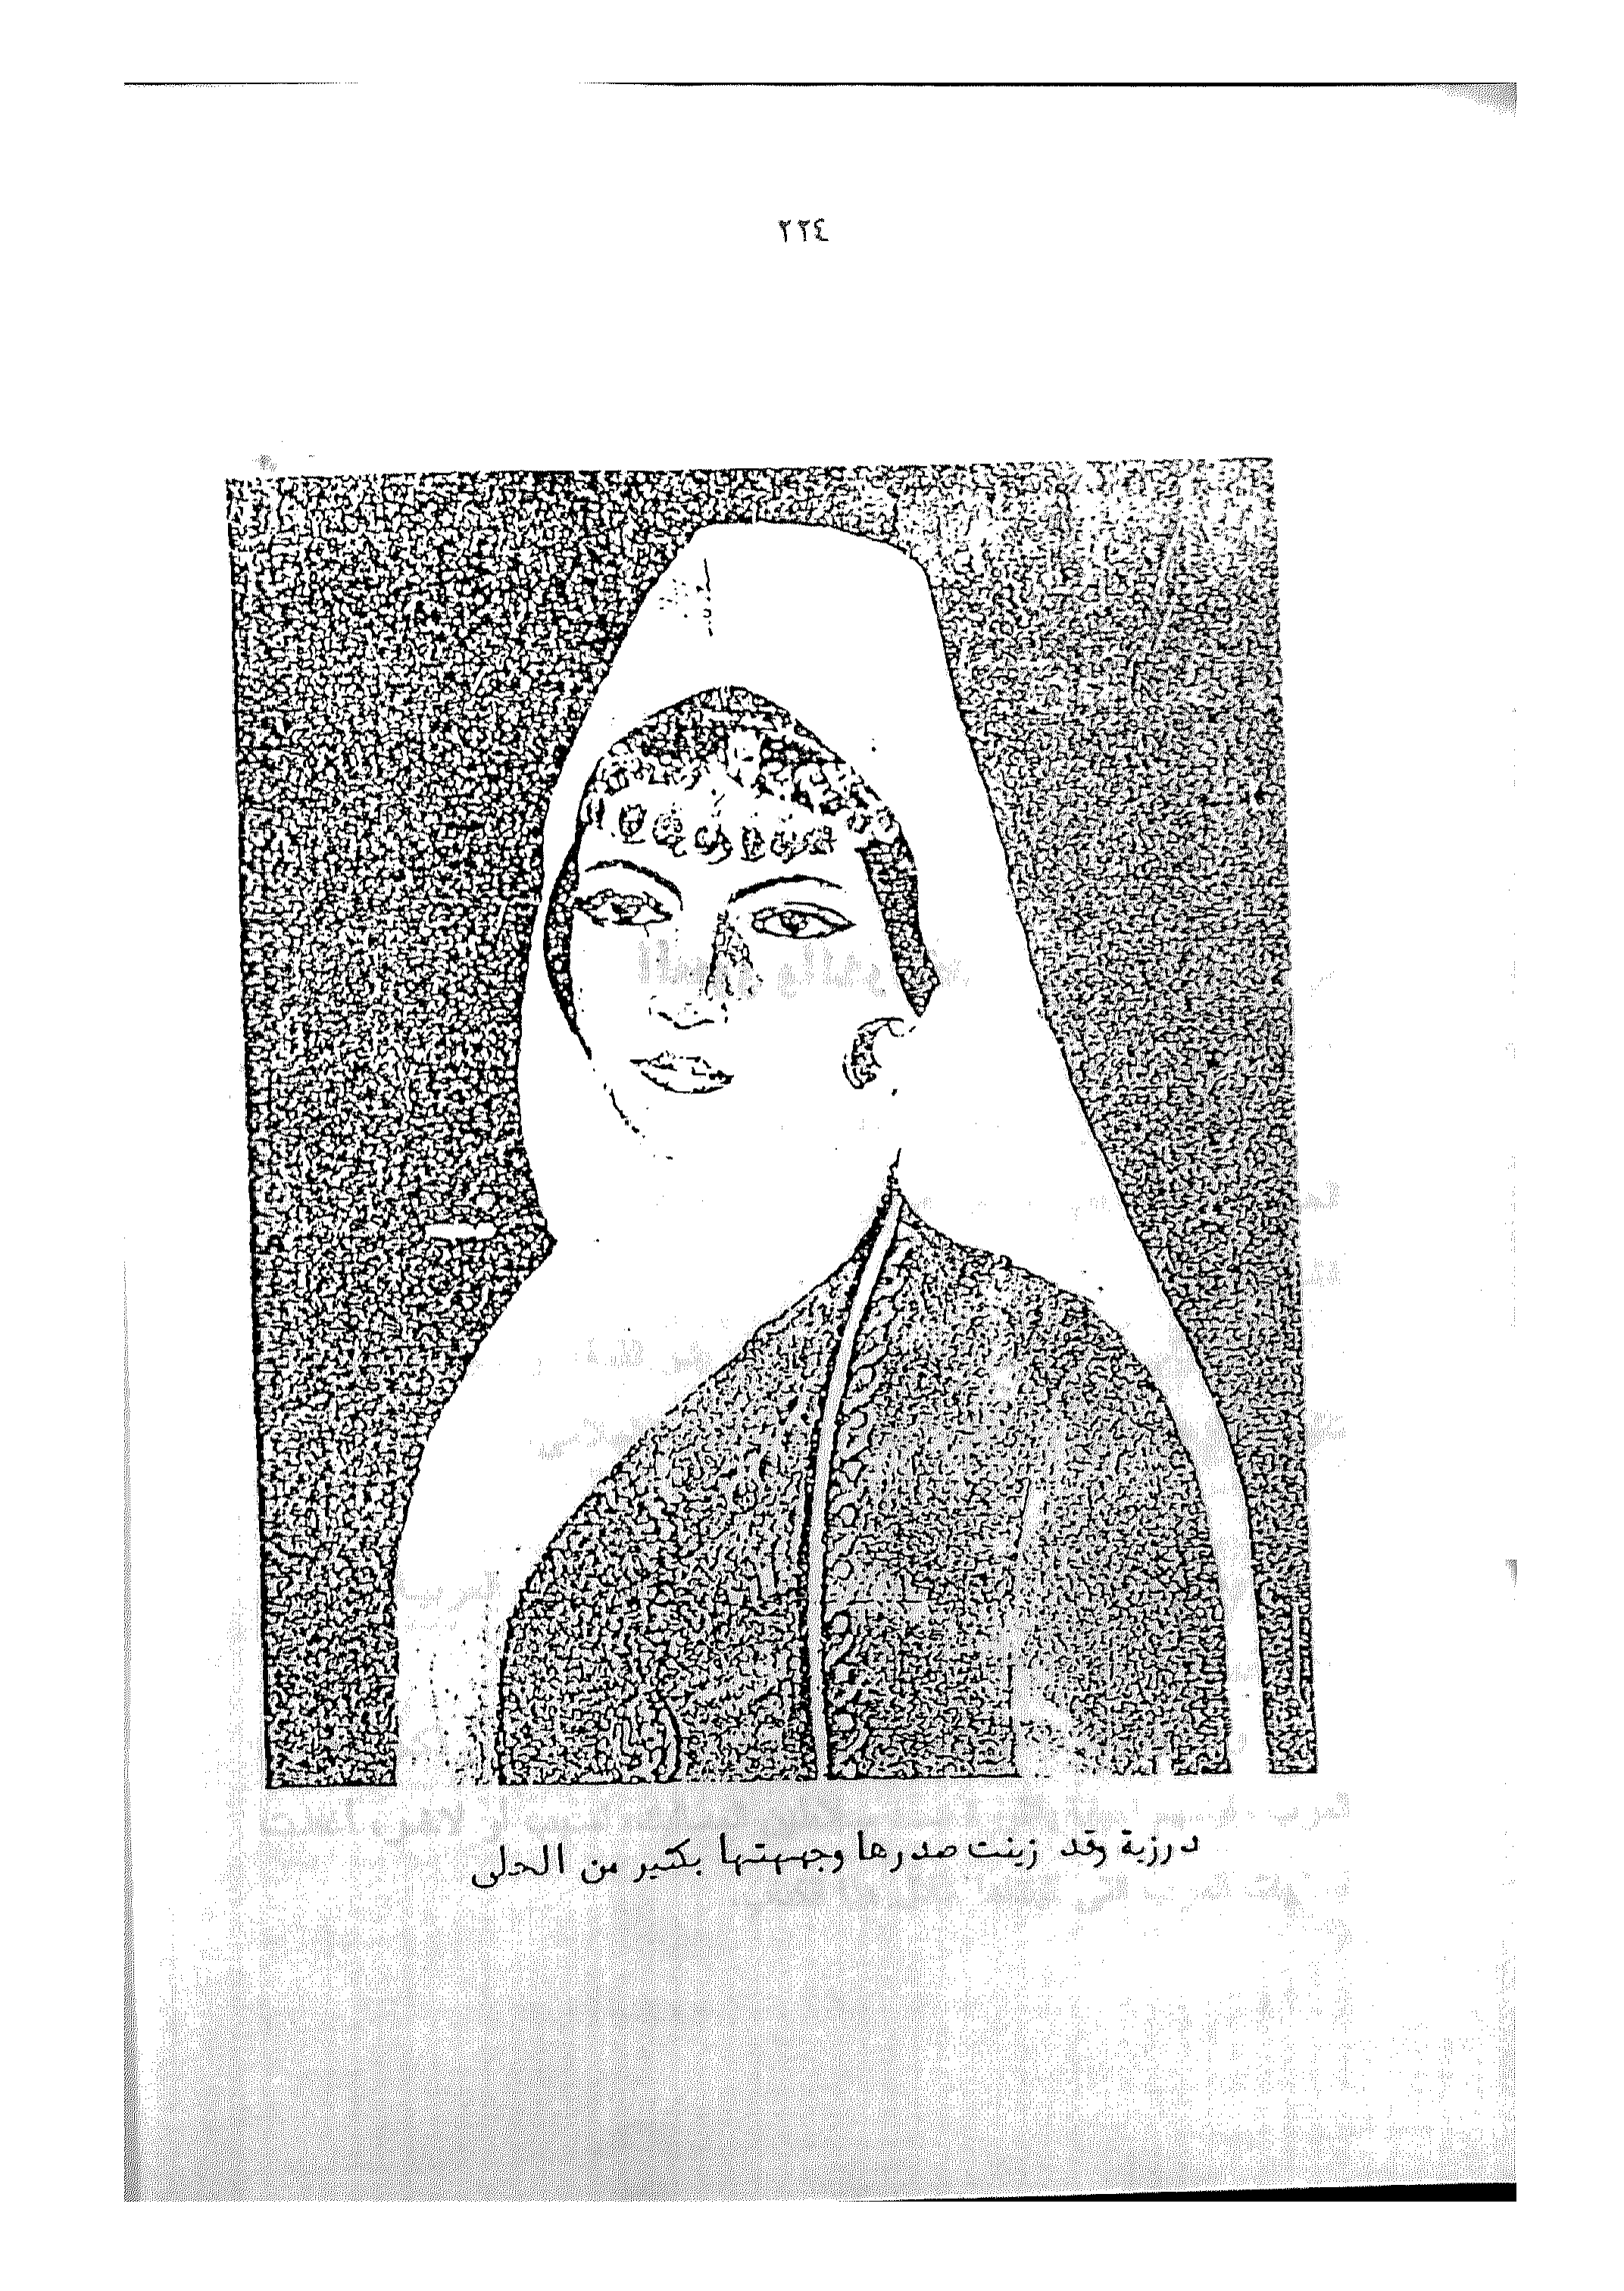 ٢٢٤
درزية وقد زينت صدرها وجبهتها بكثير من الحلى